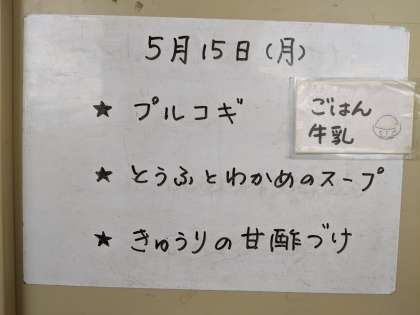 5月15日(月)
★ プルコギ
ごはん
牛乳
★ とうふとわかめのスープ
★ きゅうりの甘酢づけ